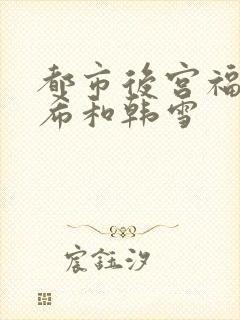 都市後宫福
希和韩雪
宸鈺汐